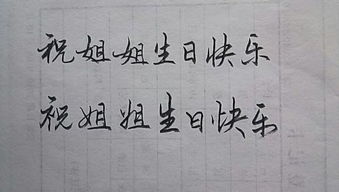 祝姐姐生日快乐
祝姐姐生日快乐